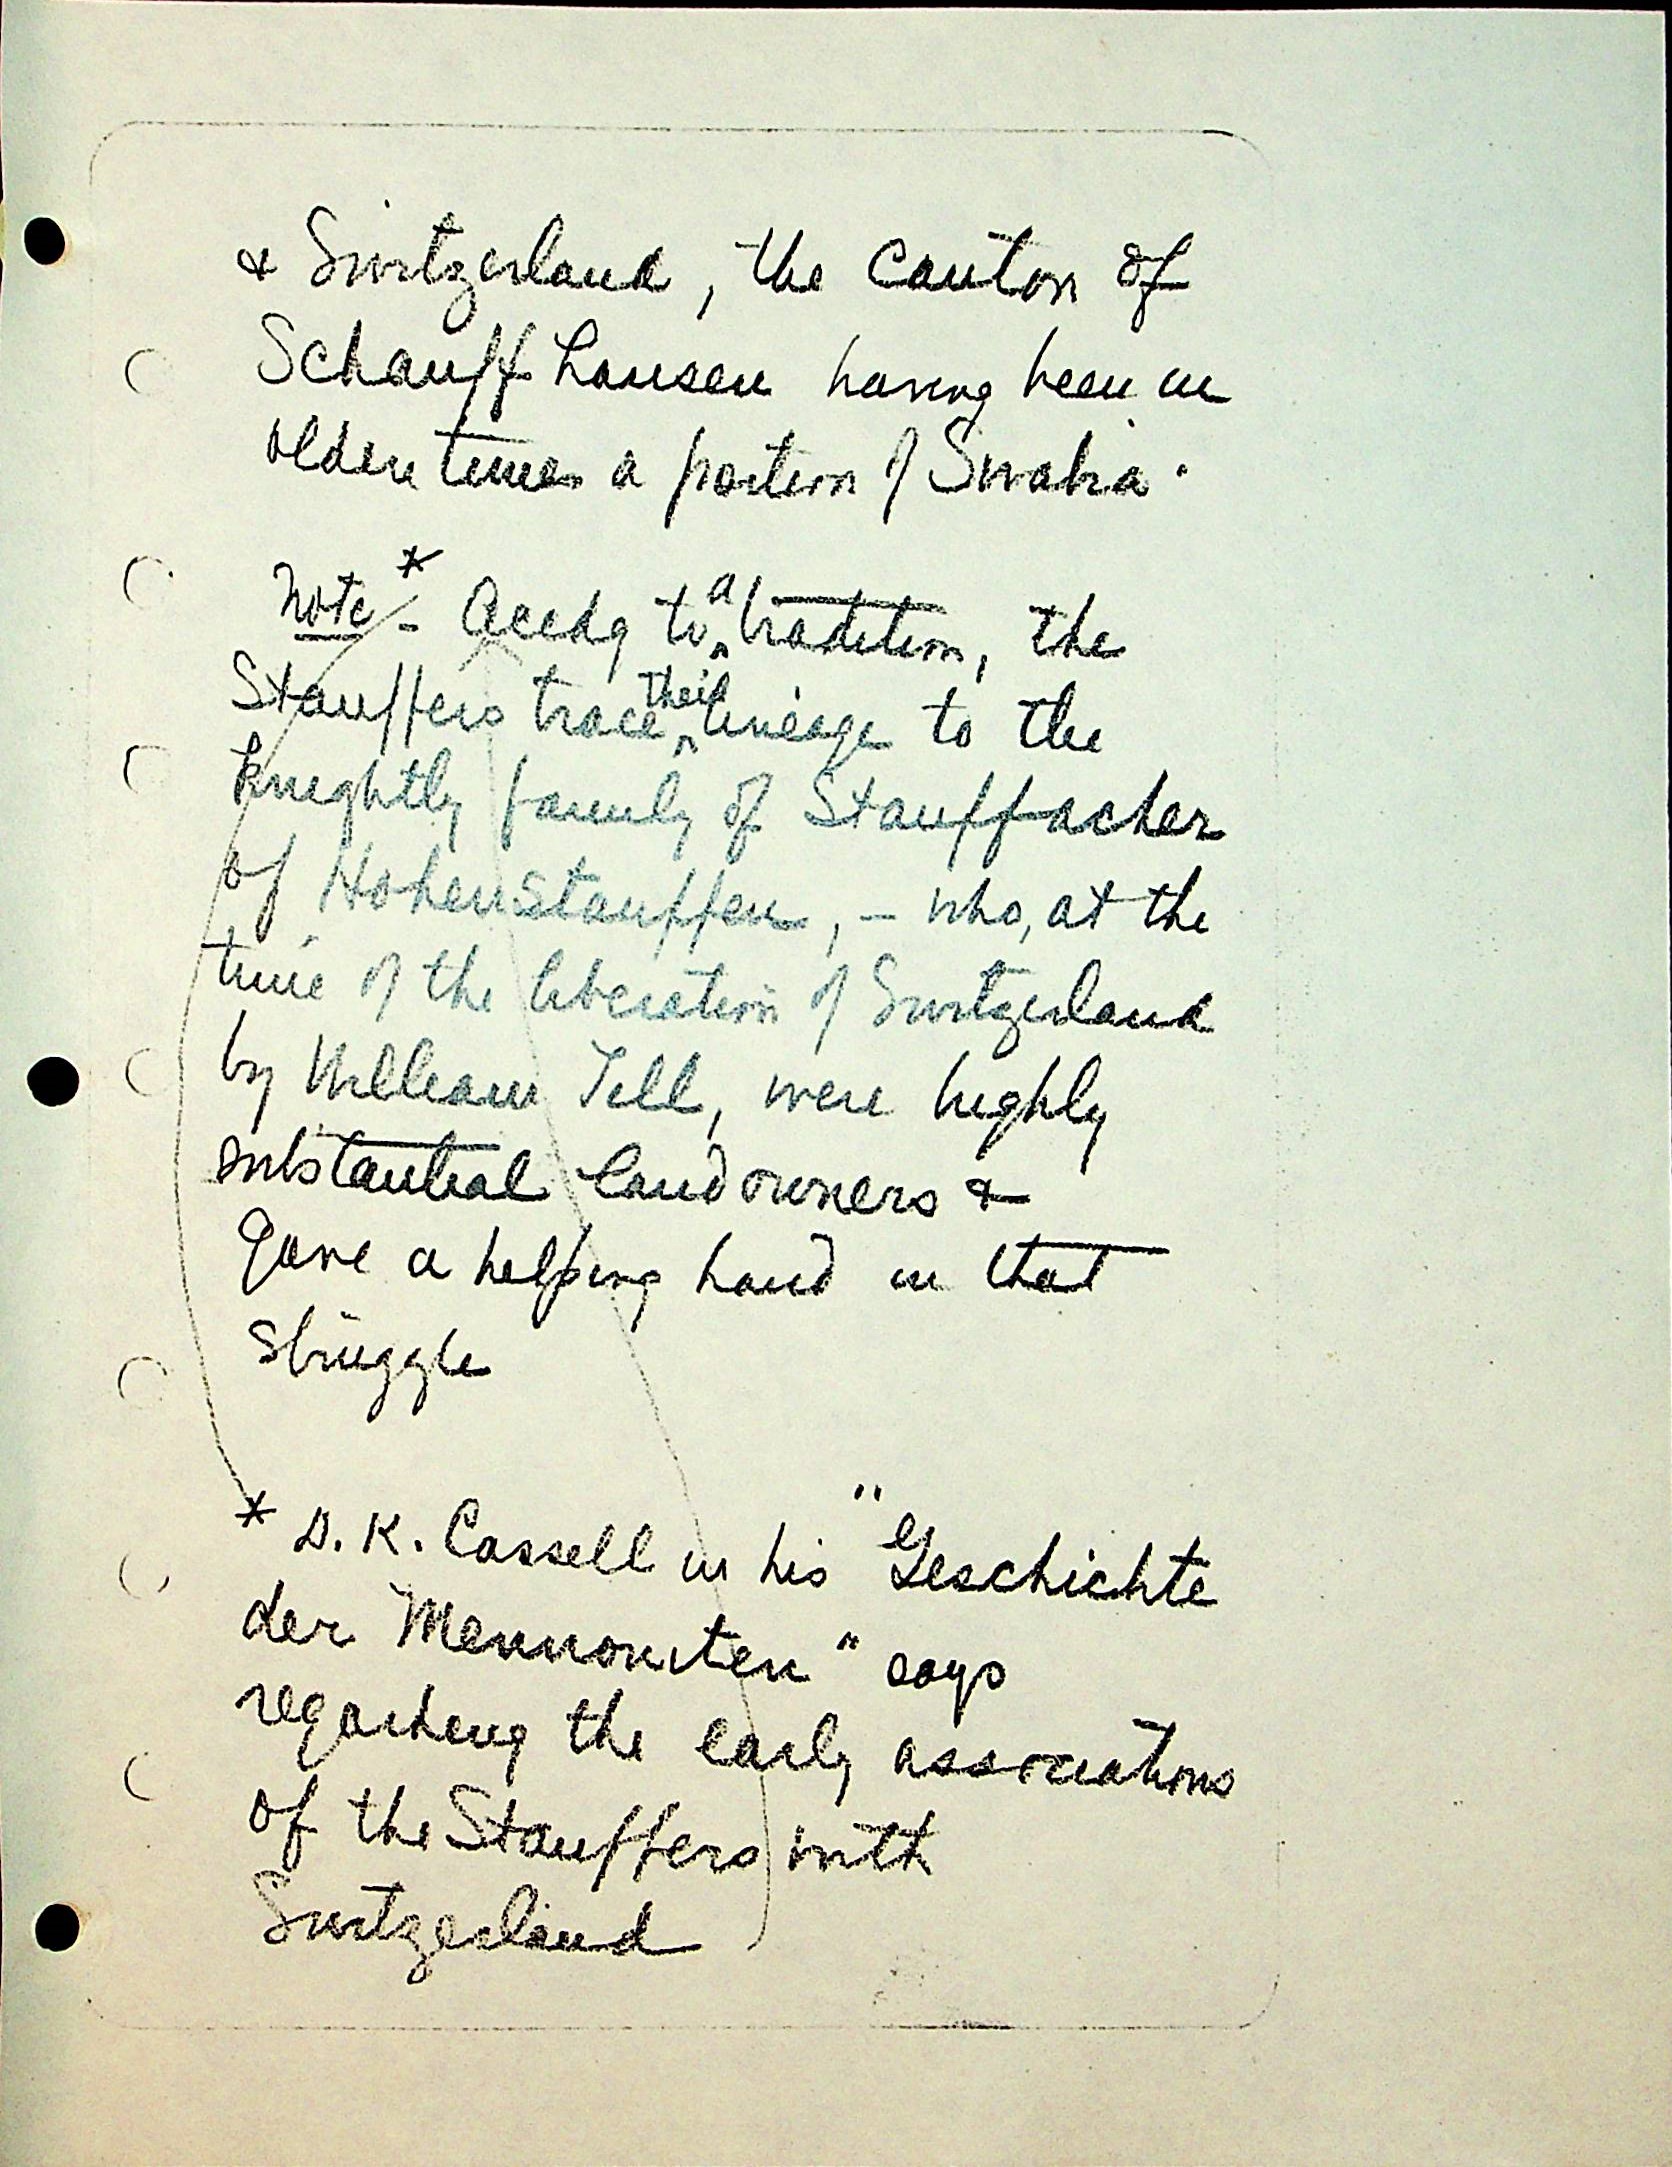 & Switzerland, the Canton of
Schauffhausen having been in
olden times a portion of Swabia.
Note * - Accdg to a tradition, the
Stauffers trace their lineage to the
knightly family of Stauffacher
of Hohenstauffen, - who, at the
time of the liberation of Switzerland
by William Tell, were highly
substantial landowners &
gave a helping hand in that
struggle
* D. K. Cassell in his "Geschichte
der Mennoniten" says
regarding the early associations
of the Stauffers with
Switzerland